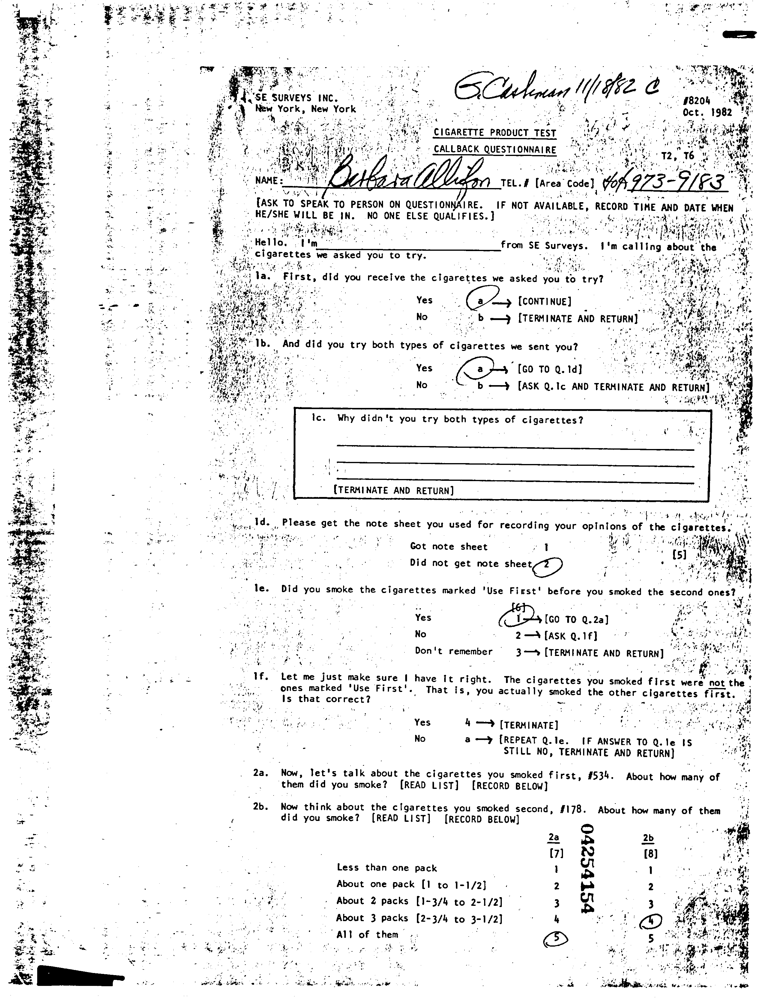 G. Cashman 11/18/82 C
SE SURVEYS INC.
New York, New York
#8204
Oct. 1982
CIGARETTE PRODUCT TEST
CALLBACK QUESTIONNAIRE
T2, T6
NAME: Barbara Allison TEL.# [Area Code] 404 973-9183
[ASK TO SPEAK TO PERSON ON QUESTIONNAIRE. IF NOT AVAILABLE, RECORD TIME AND DATE WHEN
HE/SHE WILL BE IN. NO ONE ELSE QUALIFIES.]
Hello. I'm from SE Surveys. I'm calling about the
cigarettes we asked you to try.
1a. First, did you receive the cigarettes we asked you to try?
Yes a → [CONTINUE]
No b → [TERMINATE AND RETURN]
1b. And did you try both types of cigarettes we sent you?
Yes a → [GO TO Q.1d]
No b → [ASK Q.1c AND TERMINATE AND RETURN]
1c. Why didn't you try both types of cigarettes?
[TERMINATE AND RETURN]
1d. Please get the note sheet you used for recording your opinions of the cigarettes.
Got note sheet 1
[5]
Did not get note sheet 2
1e. Did you smoke the cigarettes marked 'Use First' before you smoked the second ones?
[6]
Yes 1 → [GO TO Q.2a]
No 2 → [ASK Q.1f]
Don't remember 3 → [TERMINATE AND RETURN]
1f. Let me just make sure I have it right. The cigarettes you smoked first were not the
ones marked 'Use First'. That is, you actually smoked the other cigarettes first.
Is that correct?
Yes 4 → [TERMINATE]
No a → [REPEAT Q.1e. IF ANSWER TO Q.1e IS
STILL NO, TERMINATE AND RETURN]
2a. Now, let's talk about the cigarettes you smoked first, #534. About how many of
them did you smoke? [READ LIST] [RECORD BELOW]
2b. Now think about the cigarettes you smoked second, #178. About how many of them
did you smoke? [READ LIST] [RECORD BELOW]
2a 2b
[7] [8]
Less than one pack 1 1
About one pack [1 to 1-1/2] 2 2
About 2 packs [1-3/4 to 2-1/2] 3 3
About 3 packs [2-3/4 to 3-1/2] 4 4
All of them 5 5
04254154